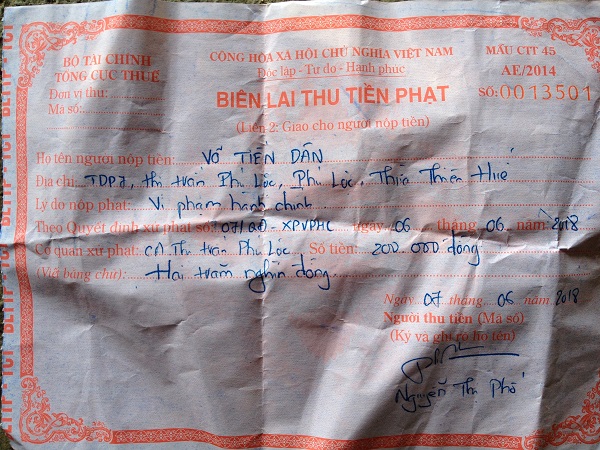 BỘ TÀI CHÍNH
TỔNG CỤC THUẾ
Đơn vị thu:
Mã số:
CỘNG HÒA XÃ HỘI CHỦ NGHĨA VIỆT NAM
Độc lập - Tự do - Hạnh phúc
MẪU CTT 45
AE/2014
SỐ: 0013501
BIÊN LAI THU TIỀN PHẠT
(Liên 2: Giao cho người nộp tiền)
Họ tên người nộp tiền: VÕ TIẾN DẦN
Địa chỉ: TDP7, thị trấn Phú Lộc, Phú Lộc, Thừa Thiên Huế
Lý do nộp phạt: Vi phạm hành chính
Theo Quyết định xử phạt số: 071QĐ-XPVPHC ngày 06 tháng 06 năm 2018
Cơ quan xử phạt: CA Thị trấn Phú Lộc Số tiền: 200.000 đồng
(Viết bằng chữ): Hai trăm nghìn đồng
Ngày 07 tháng 06 năm 2018
Người thu tiền (Mã số)
(Ký và ghi rõ họ tên)
Nguyễn Thị Phố
BLTTP - TCT BLTTP - TCT